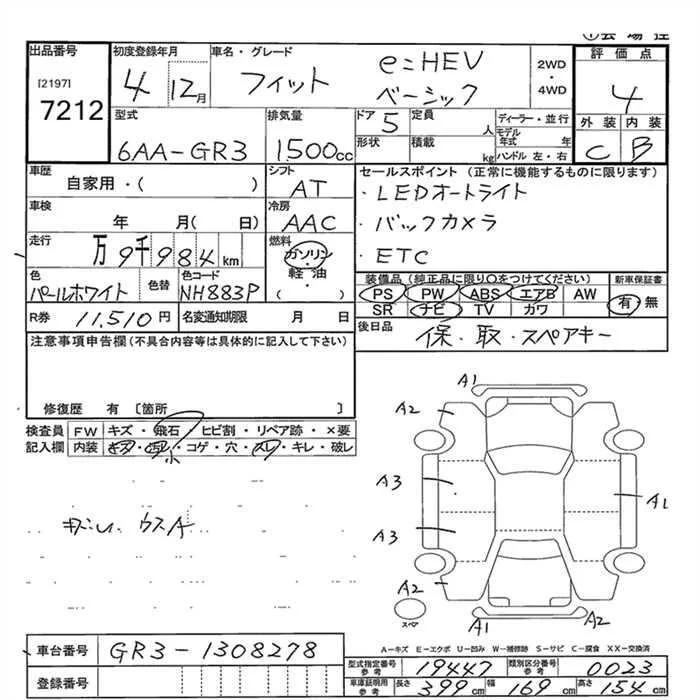 出品番号 初度登録年月 車名・グレード 評価点
[2197]
7212
4 12月
フィット e:HEV ベーシック
2WD・4WD
4
外装 内装
C B
型式 排気量 ドア 定員 人 ディーラー・並行
6AA-GR3 1500cc 5
形状 積載 kg モデル年式 年 ハンドル 左・右
車歴 シフト セールスポイント (正常に機能するものに限ります)
自家用・( ) AT
・LEDオートライト
車検 冷房
年 月(日) AAC
・バックカメラ
走行 燃料
万9千984km ガソリン・軽油 ( )
・ETC
色 色替 色コード
パールホワイト NH883P
装備品 (純正品に限り○をつけてください) 新車保証書
PS PW ABS エアB AW 有・無
SR ナビ TV カワ
R券 11,510円 名変通知期限 月 日
後日品 保・取・スペアキー
注意事項申告欄 (不具合内容等は具体的に記入して下さい)
修復歴 有 [箇所 ]
検査員記入欄
FW キズ・飛石・ヒビ割・リペア跡・×要
内装 キズ・汚レ・コゲ・穴・スレ・キレ・破レ
小
キズレ ウスA
A1
A2
A3
A1
A3
A2
スペア
A1 A2
A-キズ E-エクボ U-凹み W-補修跡 S-サビ C-腐食 XX-交換済
車台番号 GR3-1308278
登録番号
型式指定番号 参考 19447 類別区分番号 参考 0023
車庫証明用 参考 長さ 399cm 幅 169cm 高さ 154cm